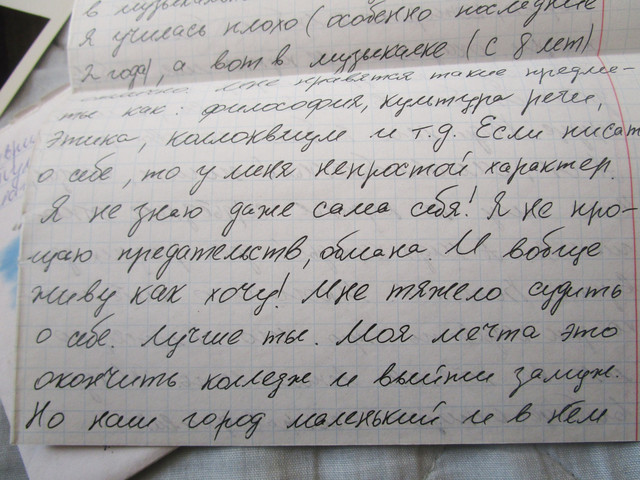 в музыкальн
я училась плохо (особенно последние
2 года), а вот в музыкалке (с 8 лет)
отлично. Мне нравятся такие предме-
ты как: философия, культура речи,
этика, коллоквиум и т.д. Если писат
о себе, то у меня непростой характер.
Я не знаю даже сама себя! Я не про-
щаю предательств, обмана. И вобще
живу как хочу! Мне тяжело судить
о себе. Лучше ты. Моя мечта это
окончить колледж и выйти замуж.
Но наш город маленький и в нём